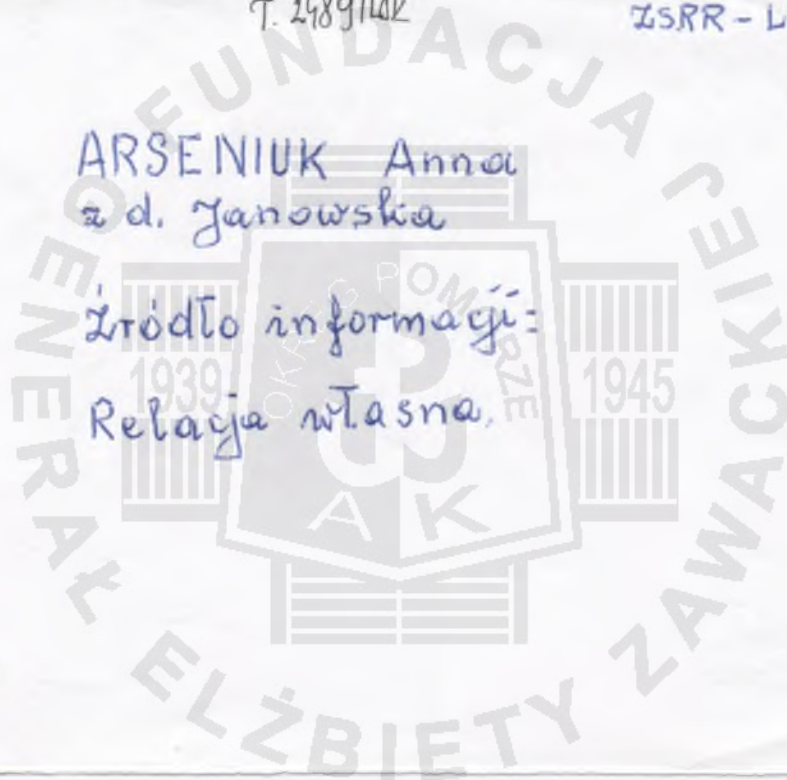 T. 2489/
ZSRR - L
ARSENIUK Anna
z d. Janowska
Źródło informacji:
Relacja własna.
FUNDACJA GENERAŁ ELŻBIETY ZAWACKIEJ
OKRĘG POMORZE
1939
1945
AK